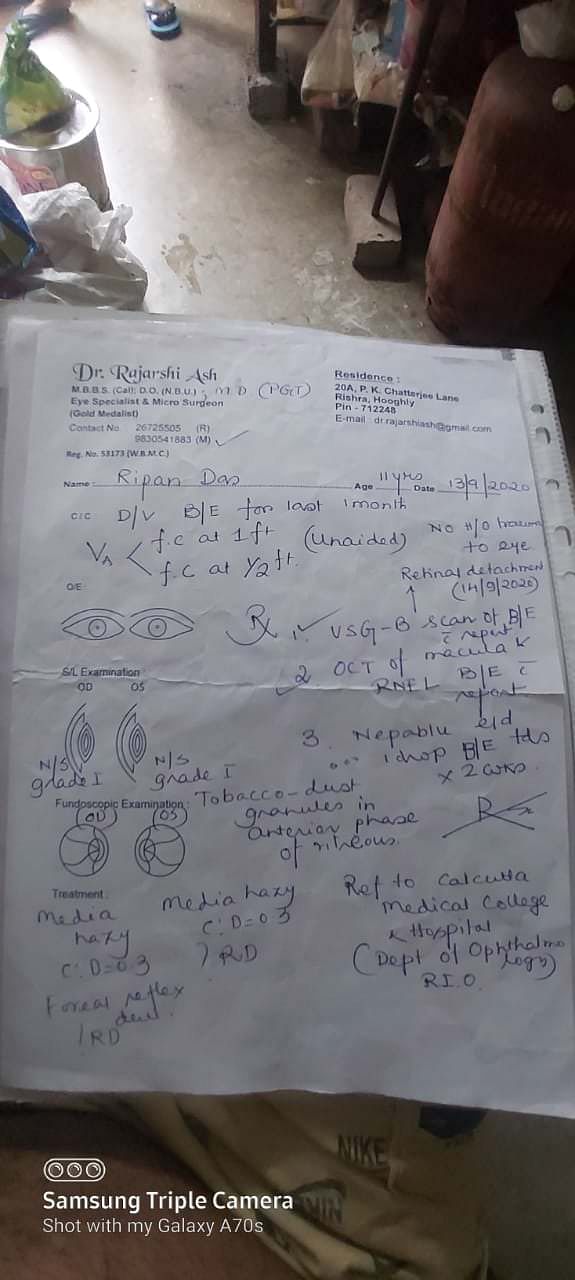 Dr. Rajarshi Ash
M.B.B.S. (Cal); D.O. (N.B.U.) ; M.D (PGT)
Eye Specialist & Micro Surgeon
(Gold Medalist)
Contact No. 26725505 (R)
9830541883 (M)
Reg. No. 53173 (W.B.M.C.)
Residence :
20A, P. K. Chatterjee Lane
Rishra, Hooghly
Pin - 712248
E-mail dr.rajarshiash@gmail.com
Name : Ripan Das Age 11 yrs Date 13/9/2020
C/C D/V B/E for last 1 month
VA < f.c at 1 ft (Unaided)
f.c at 1/2 ft.
No H/O trauma
to eye
O/E:
Retinal detachment
(14/9/2020)
Rx 1. USG-B scan of B/E
c report
2 OCT of macula &
RNFL B/E c
report
3. Nepablu e/d
1 drop B/E tds
x 2 wks
S/L Examination
OD OS
N/S
grade I
N/S
grade I
Fundoscopic Examination : Tobacco-dust
granules in
anterior phase
of vitreous.
OD OS
Treatment :
Media
hazy
C:D=0.3
Foveal reflex
dull
/RD
Media hazy
C:D=0.3
? RD
Ref to Calcutta
Medical College
& Hospital
(Dept of Ophthalmo
logy)
R.I.O.
NIKE
Samsung Triple Camera
Shot with my Galaxy A70s